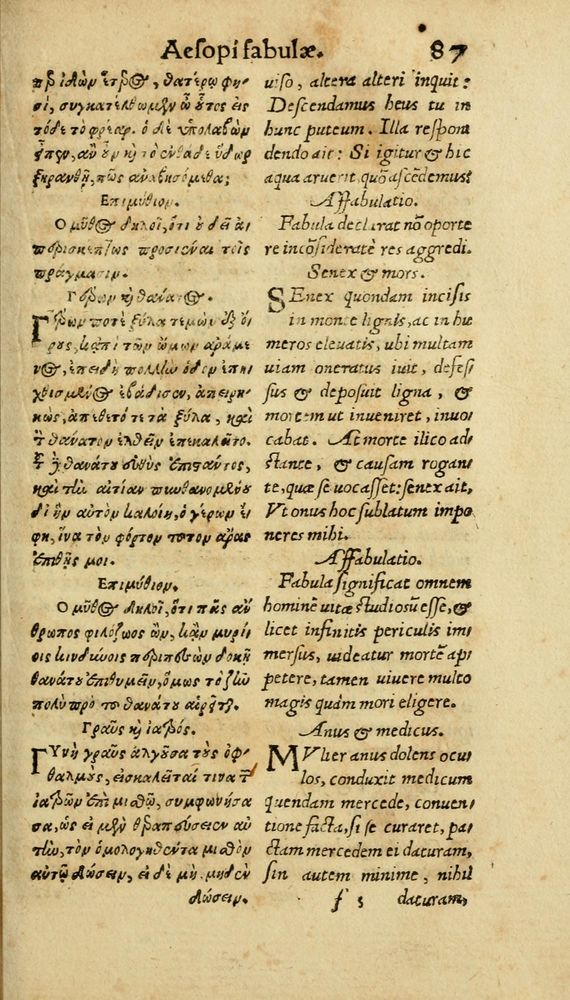 Aesopi fabulæ. 87
πριδὼν ἑτέρῳ, θατέρῳ φη-
σί, συγκατέλθωμεν ὦ οὗτος εἰς
τόδε τὸ φρέαρ. ὁ δὲ ὑπολαβὼν
εἶπεν, ἂν οὖν καὶ τὸ ἐνθάδε ὕδωρ
ξηρανθῇ, πῶς ἀναβησόμεθα;
Επιμύθιον.
Ο μῦθος δηλοῖ, ὅτι οὐ δεῖ ἀ-
περισκέπτως προσιέναι τοῖς
πράγμασιν.
Γέρων καὶ θάνατος.
Γέρων ποτὲ ξύλα τεμὼν ἐξ ὄ-
ρους, κἀπὶ τῶν ὤμων ἀράμε
νος, ἐπειδὴ πολλὴν ὁδὸν ἐπη
χθισμένος ἐβάδισεν, ἀπειρη-
κὼς, ἀπέθετό τε τὰ ξύλα, καὶ
τὸν θάνατον ἐλθεῖν ἐπεκαλεῖτο.
τοῦ δὲ θανάτου εὐθὺς ἐπιστάντος,
καὶ τὴν αἰτίαν πυνθανομένου
δι' ἣν αὐτὸν καλοίη, ὁ γέρων ἔ-
φη, ἵνα τὸν φόρτον τοῦτον ἄρας
ἐπιθῇς μοι.
Επιμύθιον.
Ο μῦθος δηλοῖ, ὅτι πᾶς ἄν
θρωπος φιλόζωος ὢν, κἂν μυρί-
οις κινδύνοις περιπεσὼν δοκῇ
θανάτου ἐπιθυμεῖν, ὅμως τὸ ζῇν
πολὺ πρὸ τοῦ θανάτου αἱρεῖται.
Γραῦς καὶ ἰατρός.
ΓΥνὴ γραῦς ἀλγοῦσα τοὺς ὀφ-
θαλμοὺς, εἰσκαλεῖταί τινα τῶν
ἰατρῶν ἐπὶ μισθῷ, συμφωνήσα
σα, ὡς εἰ μὲν θεραπεύσειεν αὐ
τὴν, τὸν ὁμολογηθέντα μισθὸν
αὐτῷ δώσειν, εἰ δὲ μὴ, μηδὲν
δώσειν.
uiso, altera alteri inquit:
Descendamus heus tu in
hunc puteum. Illa respon
dendo ait: Si igitur & hic
aqua aruerit, quõ ascẽdemus?
Affabulatio.
Fabula declarat nõ oporte
re incõsideratè res aggredi.
Senex & mors.
SEnex quondam incisis
in monte lignis, ac in hu
meros eleuatis, ubi multam
uiam oneratus iuit, defes
sus & deposuit ligna, &
mortem ut inueniret, inuo
cabat. At morte ilico ad
stante, & causam rogan
te, quæ se uocasset: senex ait,
Vt onus hoc sublatum impo
neres mihi.
Affabulatio.
Fabula significat omnem
hominẽ uitæ studiosũ esse, &
licet infinitis periculis im
mersus, uideatur mortẽ ap
petere, tamen uiuere multo
magis quàm mori eligere.
Anus & medicus.
MVlier anus dolens ocu
los, conduxit medicum
quendam mercede, conuen
tione facta, si se curaret, pa
ctam mercedem ei daturam,
sin autem minime, nihil
f 3 daturam,